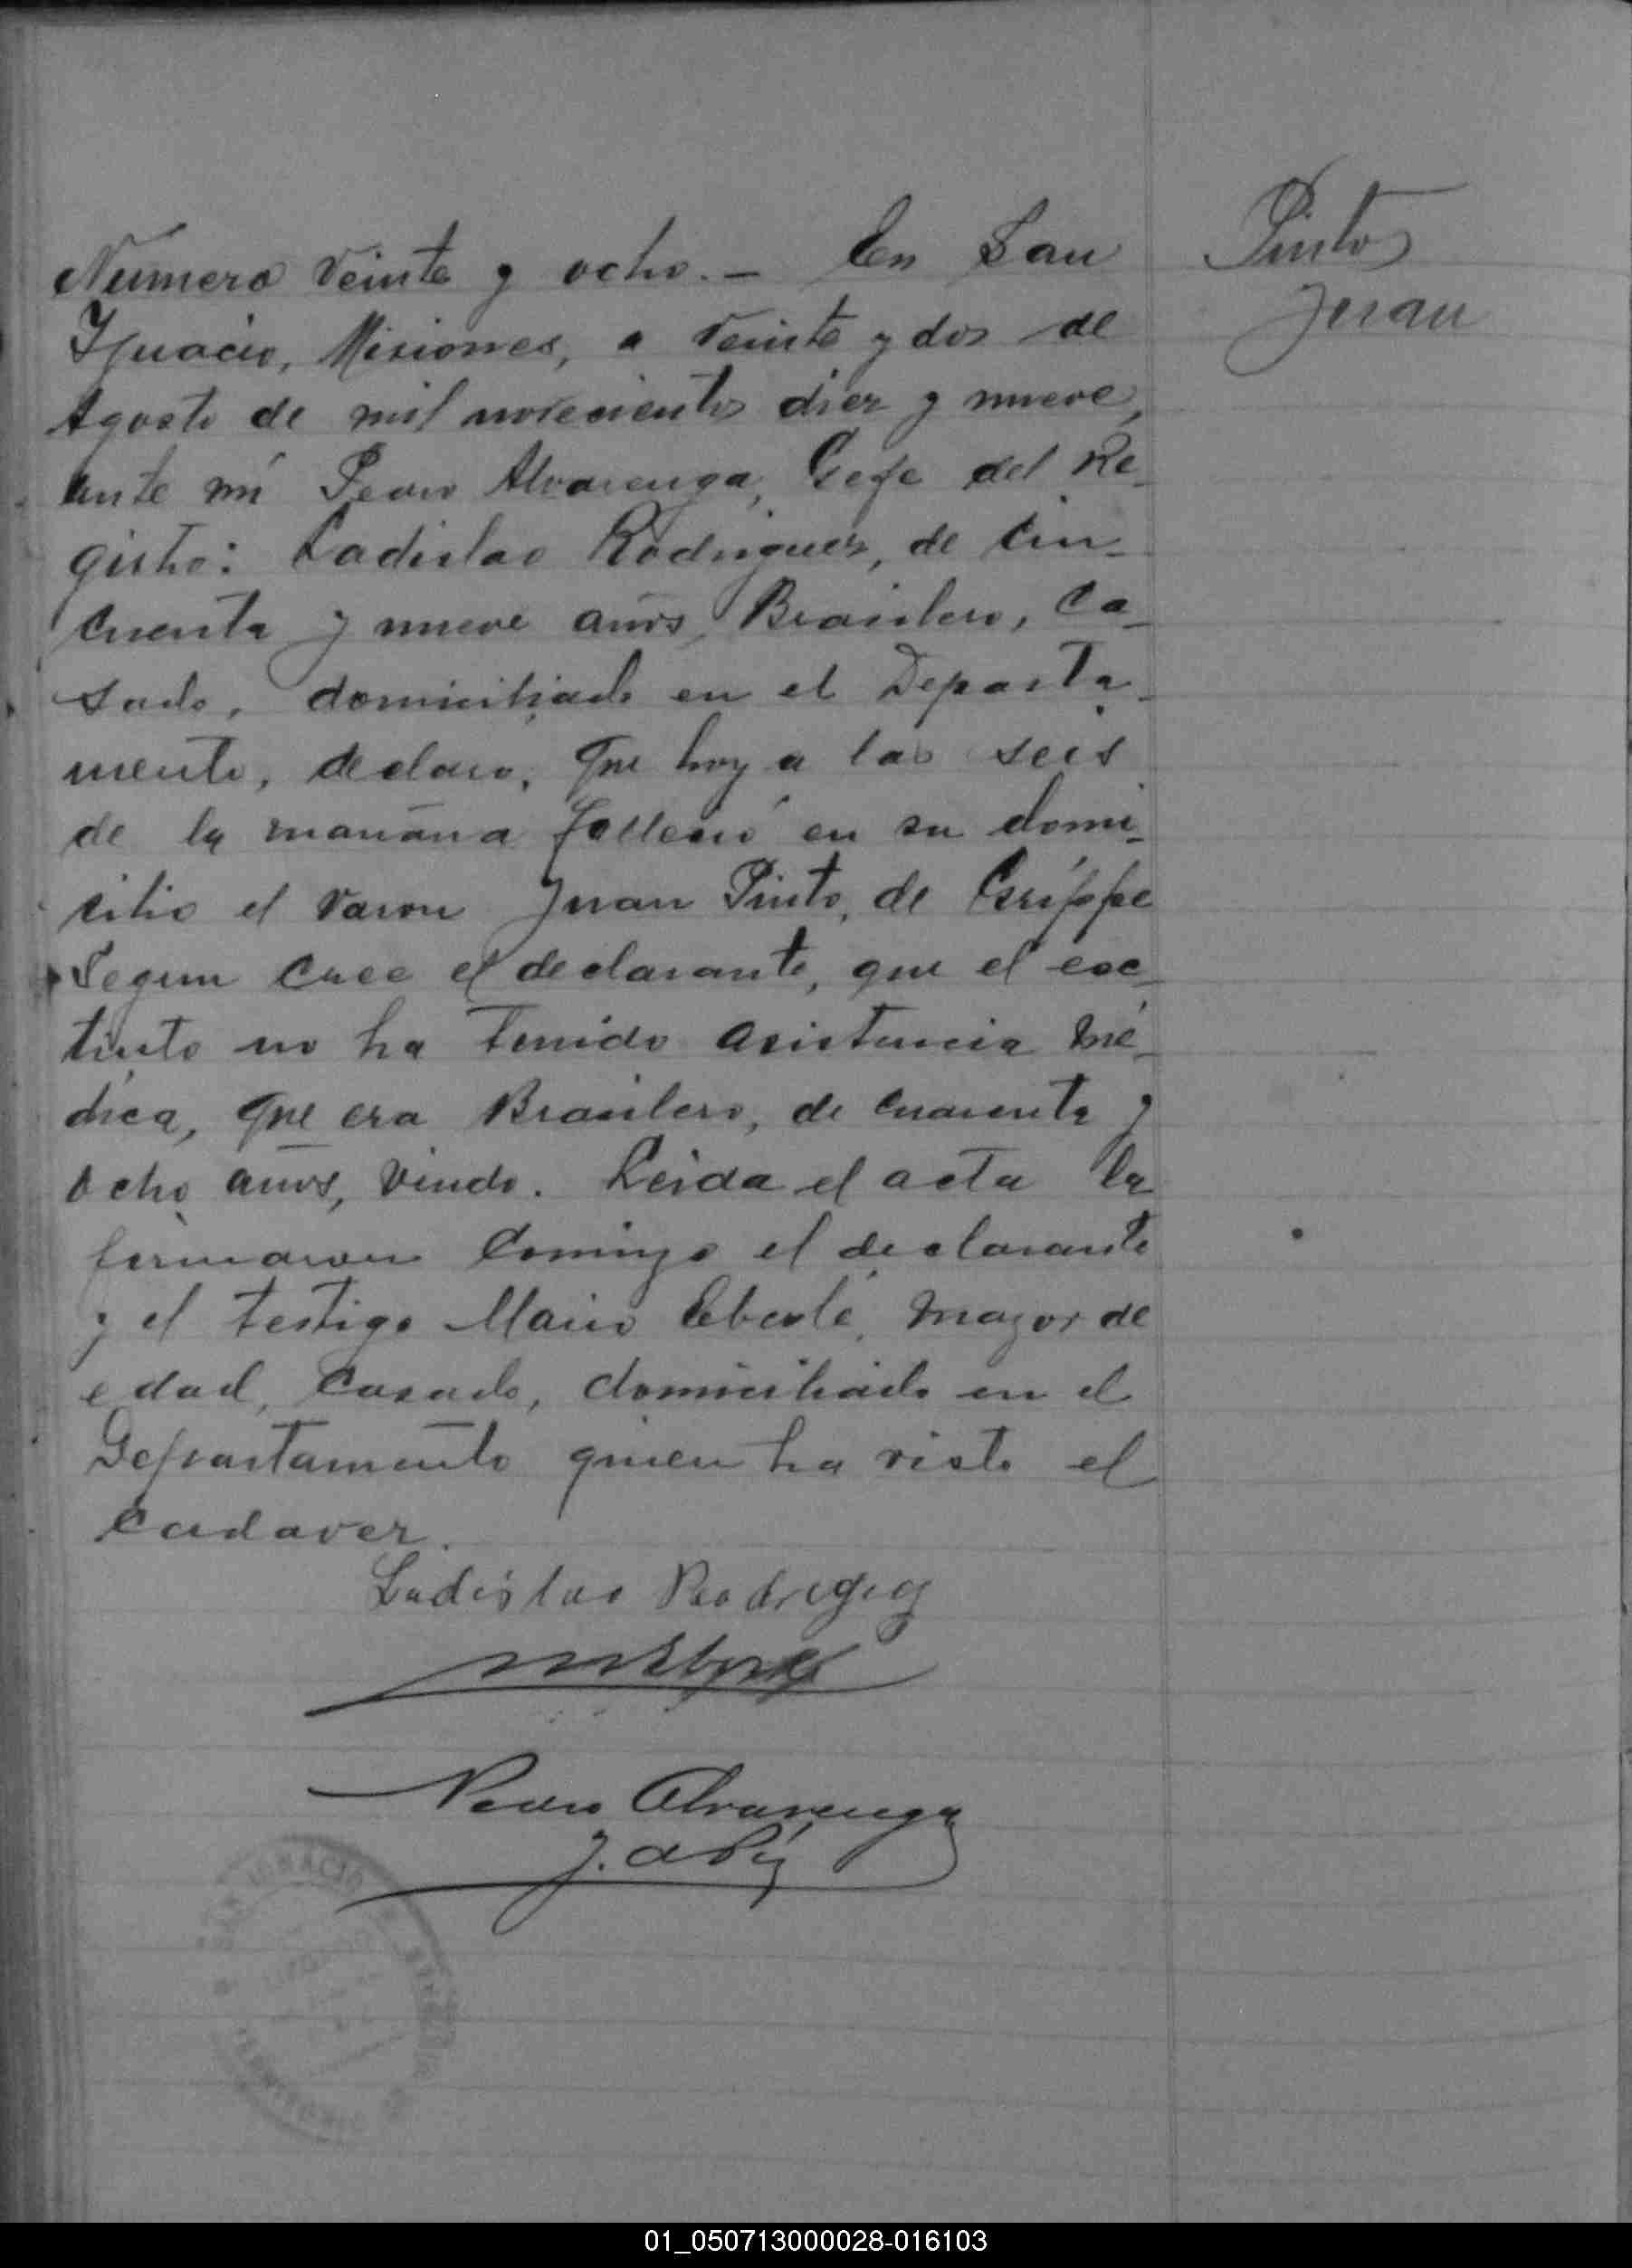 Pinto
Juan
Número veinte y ocho. – En San
Ignacio, Misiones, a veinte y dos de
Agosto de mil novecientos diez y nueve,
ante mí Pedro Alvarenga, Gefe del Re-
gistro: Ladislao Rodriguez, de cin-
cuenta y nueve años, Brasilero, ca-
sado, domiciliado en el Departa-
mento, declaro, que hoy a las seis
de la mañana falleció en su domi-
cilio el varon Juan Pinto, de Gríppe
Segun cree el declarante, que el esc-
tinto no ha tenido asistencia mé-
dica, que era Brasilero, de cuarenta y
ocho años, viudo. Leida el acta la
firmaron conmigo el declarante
y el testigo Mario Eberlé, mayor de
edad, casado, domiciliado en el
Departamento quien ha visto el
cadaver.
Ladislao Rodrigeg
Pedro Alvarenga
J. de Paz
SAN IGNACIO
01_050713000028-016103